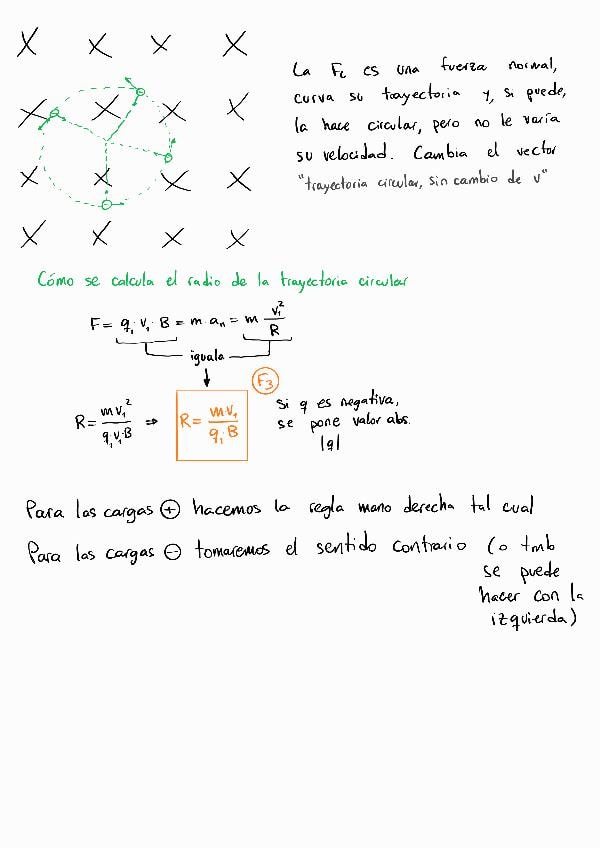 X X X X
La FL es una fuerza normal,
X X X X
curva su trayectoria y, si puede,
la hace circular, pero no le varía
su velocidad. Cambia el vector
X X X X
"trayectoria circular, sin cambio de v"
X X X X
Cómo se calcula el radio de la trayectoria circular
F = q₁ · v₁ · B = m · aₙ = m v₁²/R
iguala
F₃
R = m v₁²/q₁ v₁ B ⇒ R = m · v₁/q₁ · B
Si q es negativa,
se pone valor abs.
|q|
Para las cargas ⊕ hacemos la regla mano derecha tal cual
Para las cargas ⊖ tomaremos el sentido contrario (o tmb
se puede
hacer con la
izquierda)